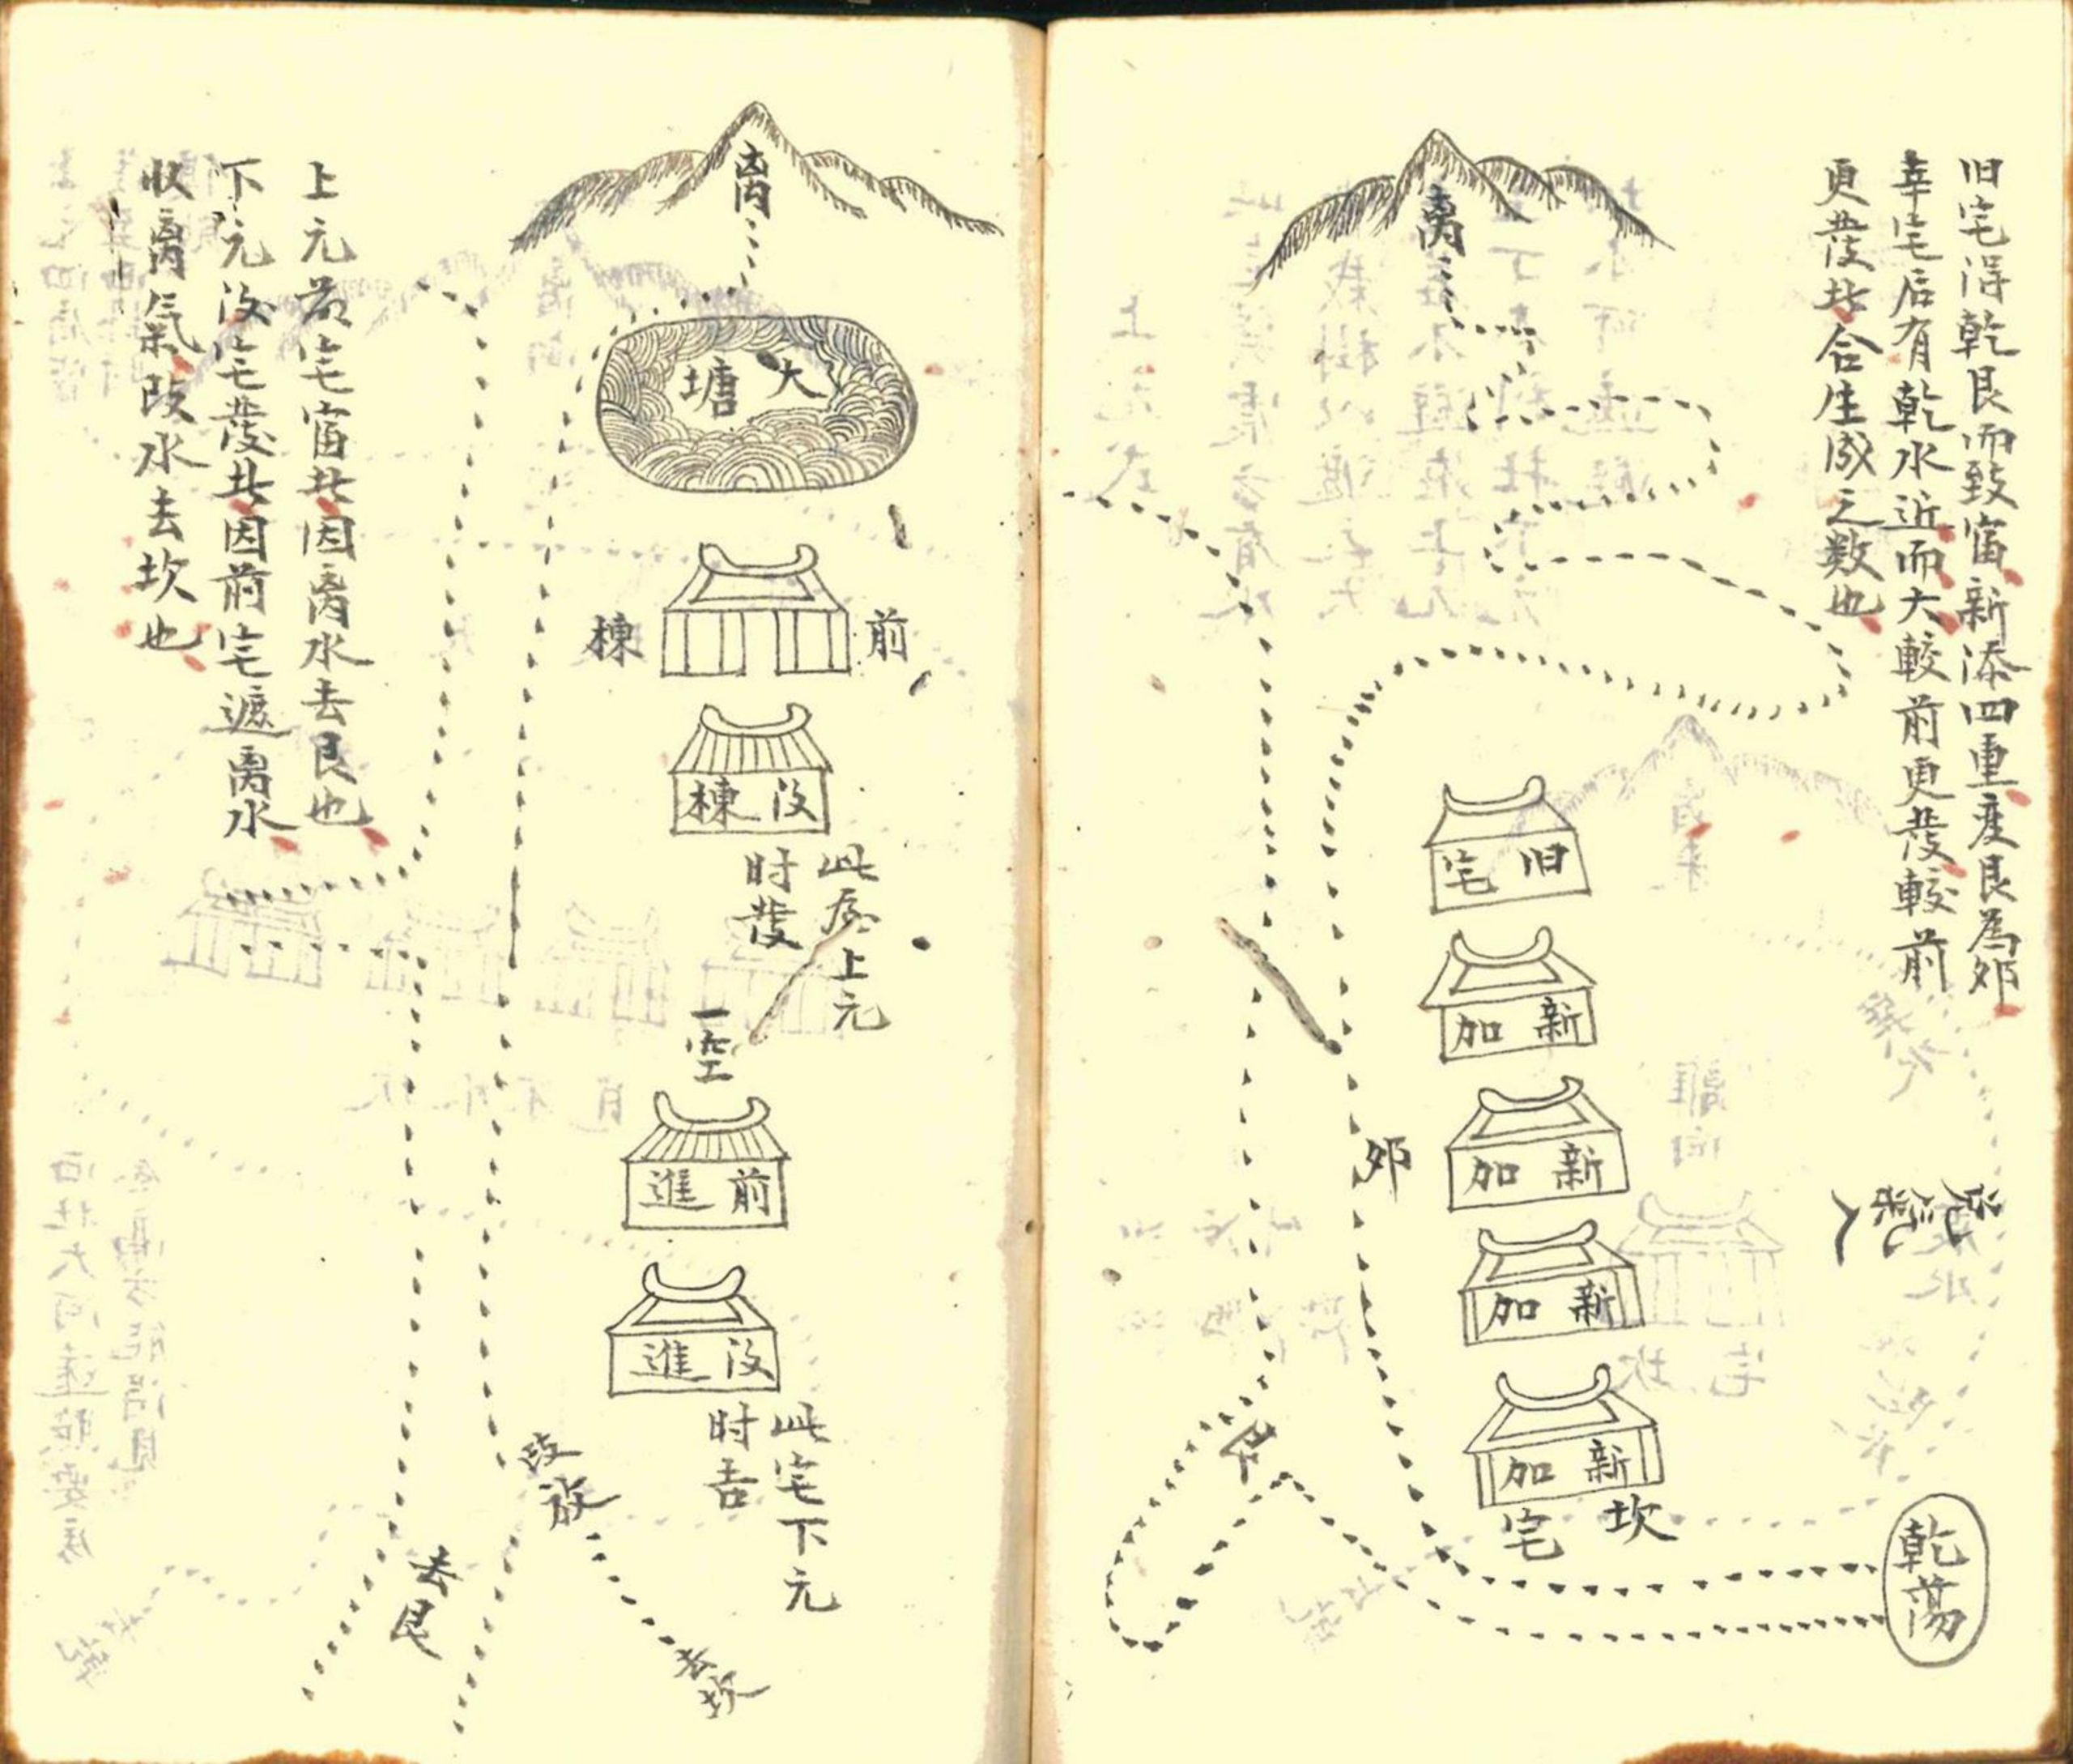 旧宅淂乾艮而致富新添四重产艮為郊
幸宅后有乾水近而大較前更發較前
更發此合生成之数也
離
旧宅
新加
新加
郊
新加
新加
坎宅
乾蕩
離
大塘
前棟
没棟
此屋上元
时發
一空
前進
没進
此宅下元
时吉
改
去坎
去艮
上元前宅富此因离水去艮也
下元没宅發此因前宅遮离水
收离氣改水去坎也